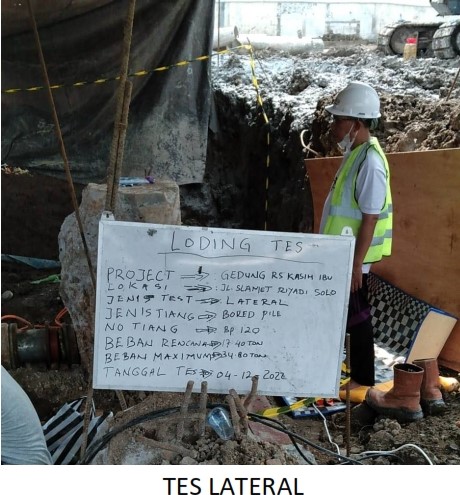 LODING TES
PROJECT → GEDUNG RS KASIH IBU
LOKASI → JL. SLAMET RIYADI SOLO
JENIS TEST → LATERAL
JENIS TIANG → BORED PILE
NO TIANG → BP 120
BEBAN RENCANA → 17.40 TON
BEBAN MAXIMUM → 34.80 TON
TANGGAL TES → 04-12-2022
TES LATERAL